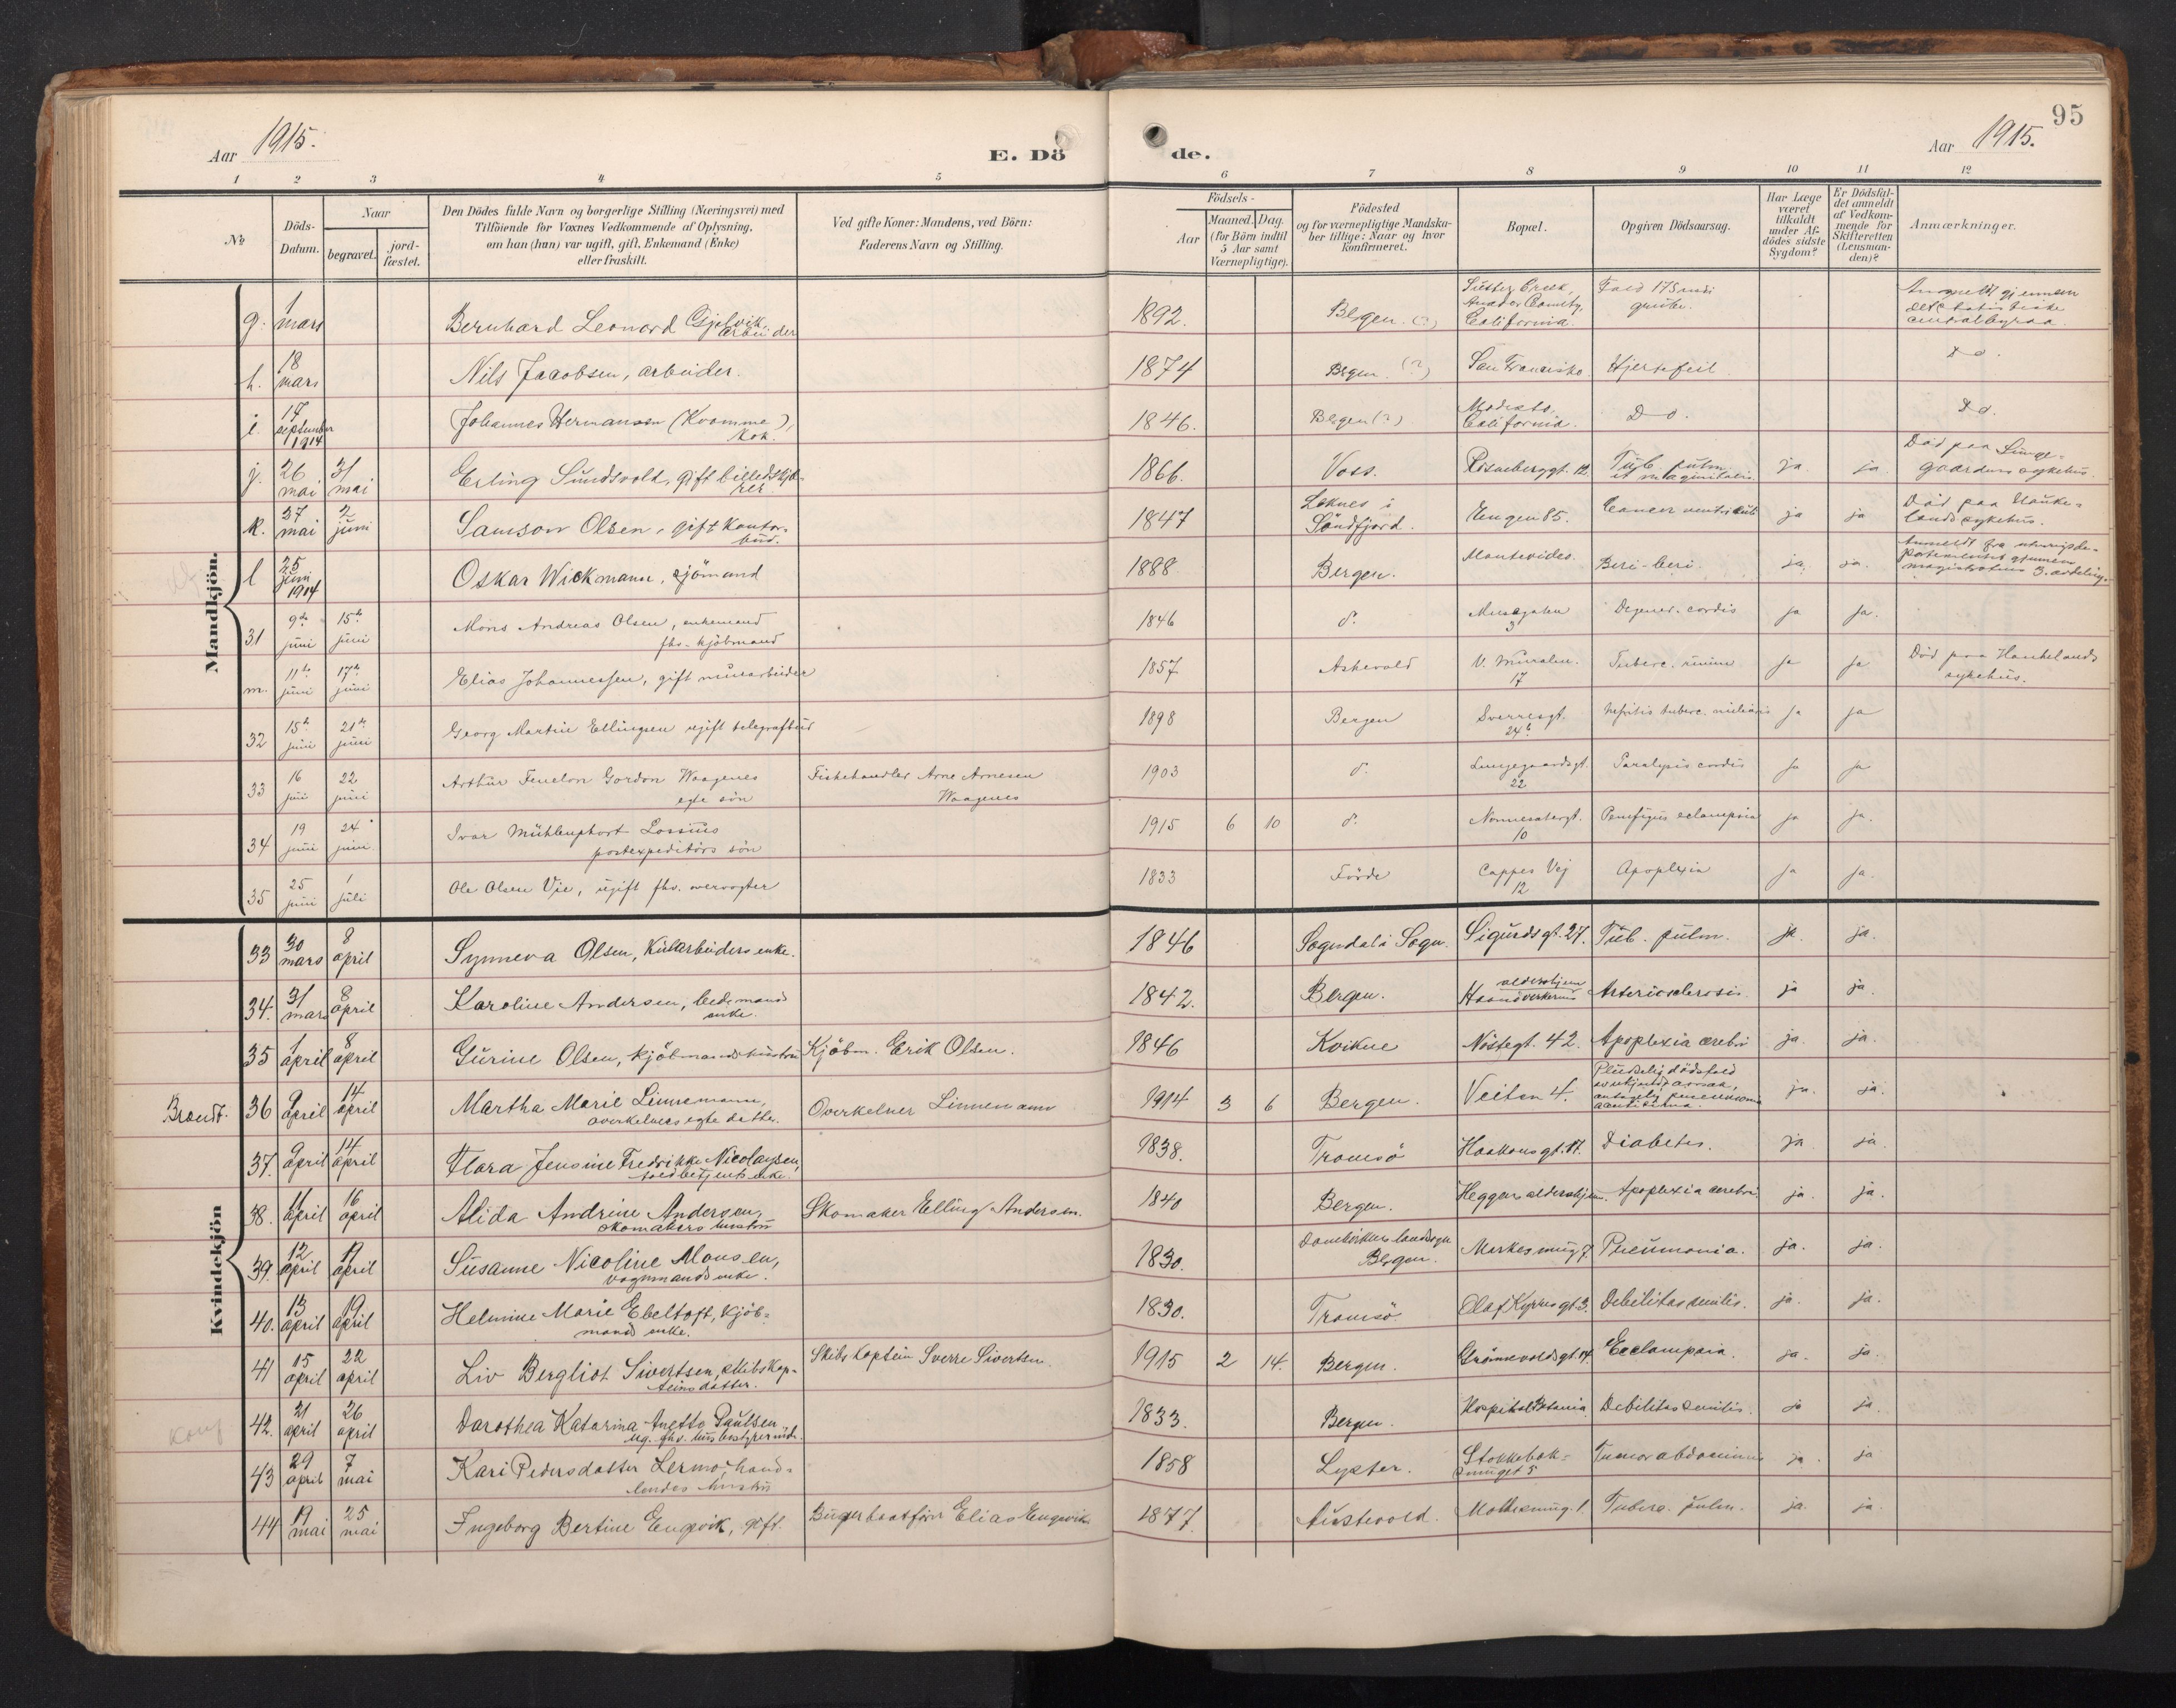 95
Aar 1915.
E. Döde.
Aar 1915.
1 2 3 4 5 6 7 8 9 10 11 12
No
Döds-Datum.
Naar
begravet.
jord-fæstet.
Den Dödes fulde Navn og borgerlige Stilling (Næringsvei) med
Tilföiende for Voxnes Vedkommende af Oplysning,
om han (hun) var ugift, gift, Enkemand (Enke)
eller fraskilt.
Ved gifte Koner: Mandens, ved Börn:
Faderens Navn og Stilling.
Födsels-
Aar
Maaned. Dag.
(for Börn indtil
5 Aar samt
Værnepligtige).
Födested
og for værnepligtige Mandska-
ber tillige: Naar og hvor
konfirmeret.
Bopæl.
Opgiven Dödsaarsag.
Har Læge
været
tilkaldt
under Af-
dödes sidste
Sygdom?
Er Dödsfal-
det anmeldt
af Vedkom-
mende for
Skifteretten
(Lensman-
den)?
Anmærkninger.
Mandkjön.
g. 1 mars Bernhard Leonard Gjelvik, arbeider 1892. Bergen. (?) Sutter Creek, Amador County, California. Fald i grube. Anmeldt gjennem det statistiske centralbyraa.
h. 18 mars Nils Jacobsen, arbeider. 1874 Bergen. (?) San Francisko Hjertefeil Do.
i. 17 september 1914 Johannes Hermansen (Kvamme), kok. 1846. Bergen (?) Modesto. California. Do. Do.
j. 26 mai 31 mai Erling Sundsvold, gift billedskjærer 1866. Voss. Rosenberggt. 12. Tub. pulm. ja ja. Död paa Lungegaardens sykehus.
k. 27 mai 2 juni Samson Olsen, gift kontorbud. 1847 i Söndfjord. Engen 85. Cancer ventriculi ja ja Död paa Haukelands sykehus.
l 25 juni 1914 Oskar Wickmann, sjömand 1888. Bergen. Montevideo. Beri-beri. ja. ja. Anmeldt fra utenrigsdepartementet gjennem magistratens 3. avdeling.
31 9de juni 15de juni Mons Andreas Olsen, enkemand fhv. kjöbmand 1846 d. 3 Degener. cordis ja ja.
m. 11te juni 17de juni Elias Johannessen, gift murarbeider 1857. Askevold V. Muralm. 17 Tuberc. ja ja Död paa Haukelands sykehus.
32 15de juni 21de juni Georg Martin Ellingsen ugift telegrafbud 1898 Bergen Sverresgt. 24b Nefritis tuberc. miliaris ja ja
33 16 juni 22 juni Arthur Fenelon Gordon Waagenes egte sön Fiskehandler Arne Arnesen Waagenes 1903 d. Lungegaardsgt. 22 Paralysis cordis ja ja
34 19 juni 24 juni. Ivar Mühlenphort Lossius postexpeditörs sön 1915 6 10 d. Nonnesetergt. 10 Pemfigus eclampsia ja ja.
35 25 juni 1 juli Ole Olsen Vie, ugift fhv. overvogter 1833 Förde Cappes Vej 12 Apoplexia ja ja.
Kvindekjön
33 30 mars 8 april Synneva Olsen, kularbeiders enke. 1846 Sogndal i Sogn. Sigurdsgt. 27. Tub. pulm. ja. ja.
34. 31 mars 8 april Karoline Andersen, bedemands enke. 1842. Bergen. Haandverkernes aldershjem Arteriosclerosis. ja ja.
35 1 april 8 april Gurine Olsen, kjöbmandshustru Kjöbm. Erik Olsen. 1846 Kvikne Nöstegt. 42. Apoplexia cerebri ja. ja.
Brandt. 36 9 april 14 april Martha Marie Linnemann, overkelners egte datter. Overkelner Linnemann 1914 3 6 Bergen. Veiten 4. Pludselig dödsfald av ukjendt aarsak, antagelig pneumonia ja. ja.
37. 9 april 14 april Flara Jensine Fredrikke Nicolaysen, toldbetjents enke. 1838. Tromsö Haakonsgt. 17. Diabetes. ja ja.
38. 11 april 16 april Alida Andrine Andersen, skomakers hustru Skomaker Elling Andersen. 1840 Bergen. Heggens aldershjem. Apoplexia cerebri ja. ja.
39. 12 april 17 april Susanne Nicoline Monsen, vognmands enke. 1830. Domkirkens landsogn Bergen. Markesmug 7 Pneumonia. ja. ja.
40. 13 april 19 april Helmine Marie Ebeltoft, kjöbmands enke. 1830. Tromsö Olaf Kyrres gt. 3. Debilitas senilis. ja. ja.
41 15 april 22 april Liv Bergliot Sivertsen, skibskapteins datter. Skibskaptein Sverre Sivertsen. 1915 2 14. Bergen. Grönnevoldsgt. 14. Ecclampsia. ja. ja.
42. 21 april 26 april Dorothea Katarina Anette Paulsen ug. fhv. husbestyrerinde. 1833. Bergen. Hospitalet Betania Debilitas senilis. ja ja.
43 29 april 7 mai Kari Pedersdatter Lermo, handlendes hustru 1858 Lyster. Stokkebaksmuget 5 Tumor abdominis ja. ja
44 19 mai 25 mai Ingeborg Bertine Engevik, gift. Bugserbaatförer Elias Engevik 1877. Austevold. Mothesmug. 1. Tuberc. pulm. ja. ja.